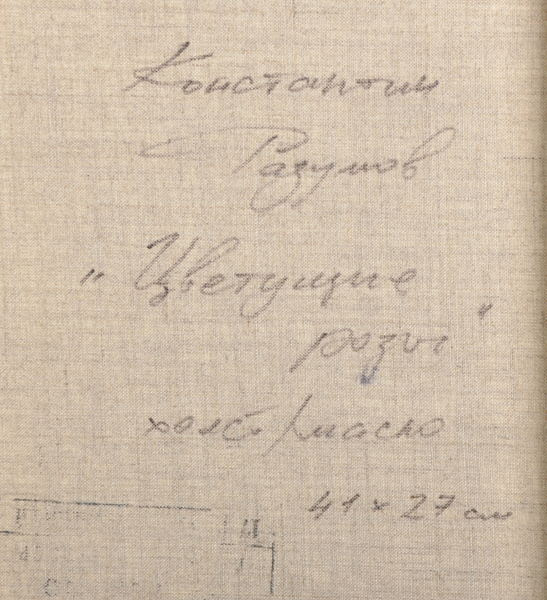 Константин
Разумов
"Цветущие
розы"
холст/масло
41 x 27 см